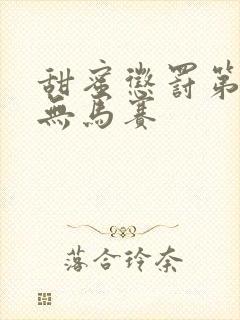 甜蜜懲罰第
無馬賽
落合玲奈